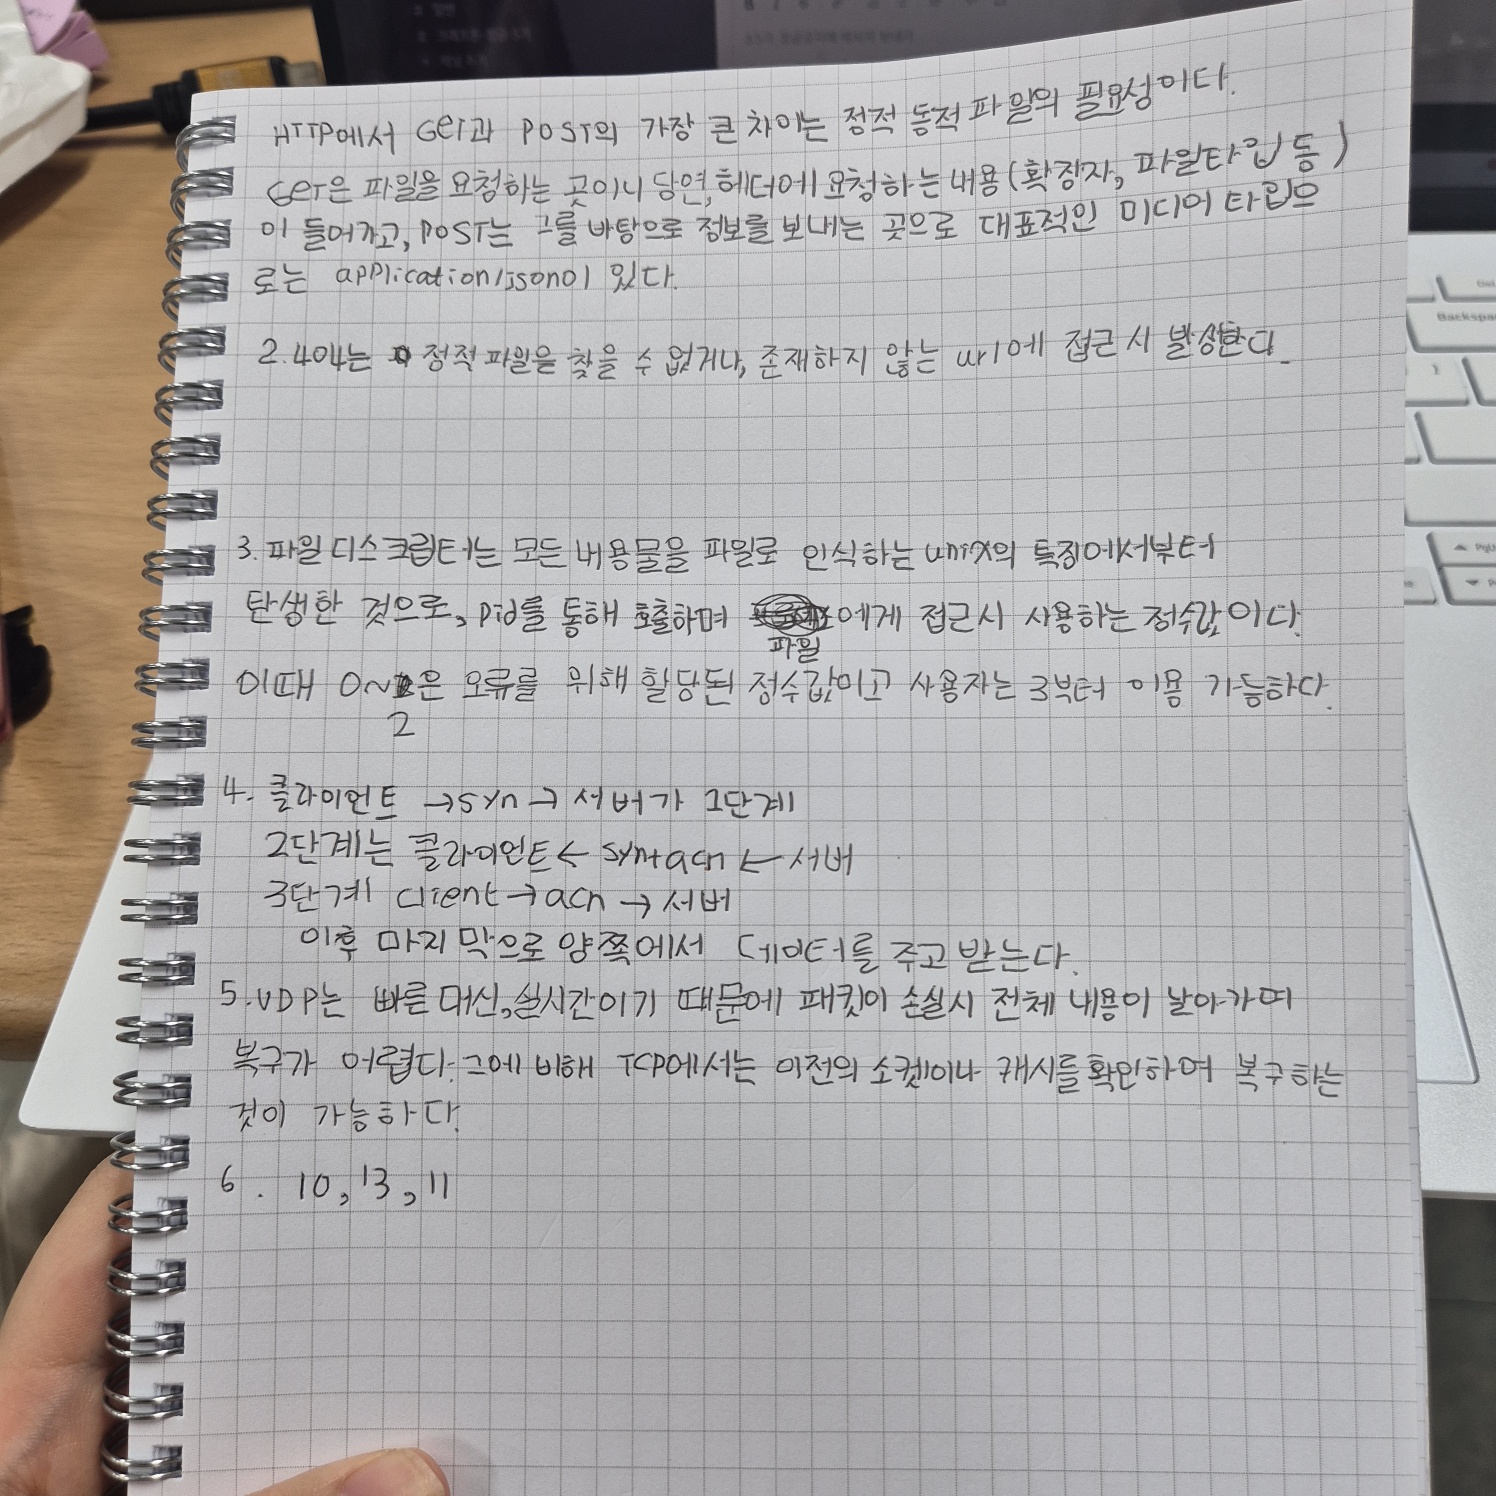 HTTP에서 GET과 POST의 가장 큰 차이는 정적 동적 파일의 필요성이다.
GET은 파일을 요청하는 곳이니 당연, 헤더에 요청하는 내용(확장자, 파일타입 등)
이 들어가고, POST는 그를 바탕으로 정보를 보내는 곳으로 대표적인 미디어 타입으
로는 application/json이 있다.
2. 404는 정적 파일을 찾을 수 없거나, 존재하지 않는 url에 접근 시 발생한다.
3. 파일 디스크립터는 모든 내용물을 파일로 인식하는 unix의 특징에서부터
탄생한 것으로, pid를 통해 호출하며 에게 접근시 사용하는 정수값이다.
파일
이때 0~2은 오류를 위해 할당된 정수값이고 사용자는 3부터 이용 가능하다.
2
4. 클라이언트 → syn → 서버가 1단계
2단계는 클라이언트 ← syn+ack ← 서버
3단계 client → ack → 서버
이후 마지막으로 양쪽에서 데이터를 주고 받는다.
5. UDP는 빠른 대신, 실시간이기 때문에 패킷이 손실시 전체 내용이 날아가며
복구가 어렵다. 그에 비해 TCP에서는 이전의 소켓이나 캐시를 확인하여 복구하는
것이 가능하다.
6. 10, 13, 11